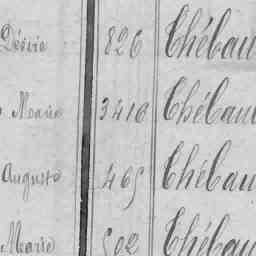 Désiré 826 Thébau
Marie 3410 Thébau
Auguste 465 Thébau
Marie 502 Thébau